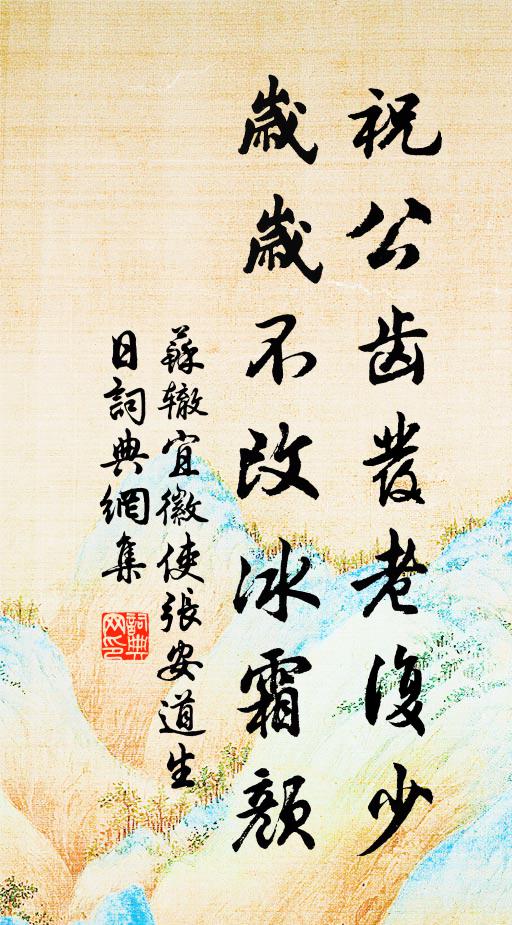 祝公齿發老復少
歲歲不改冰霜颜
蘇辙宜徽使張安道生
日詞典網集
詞典网印